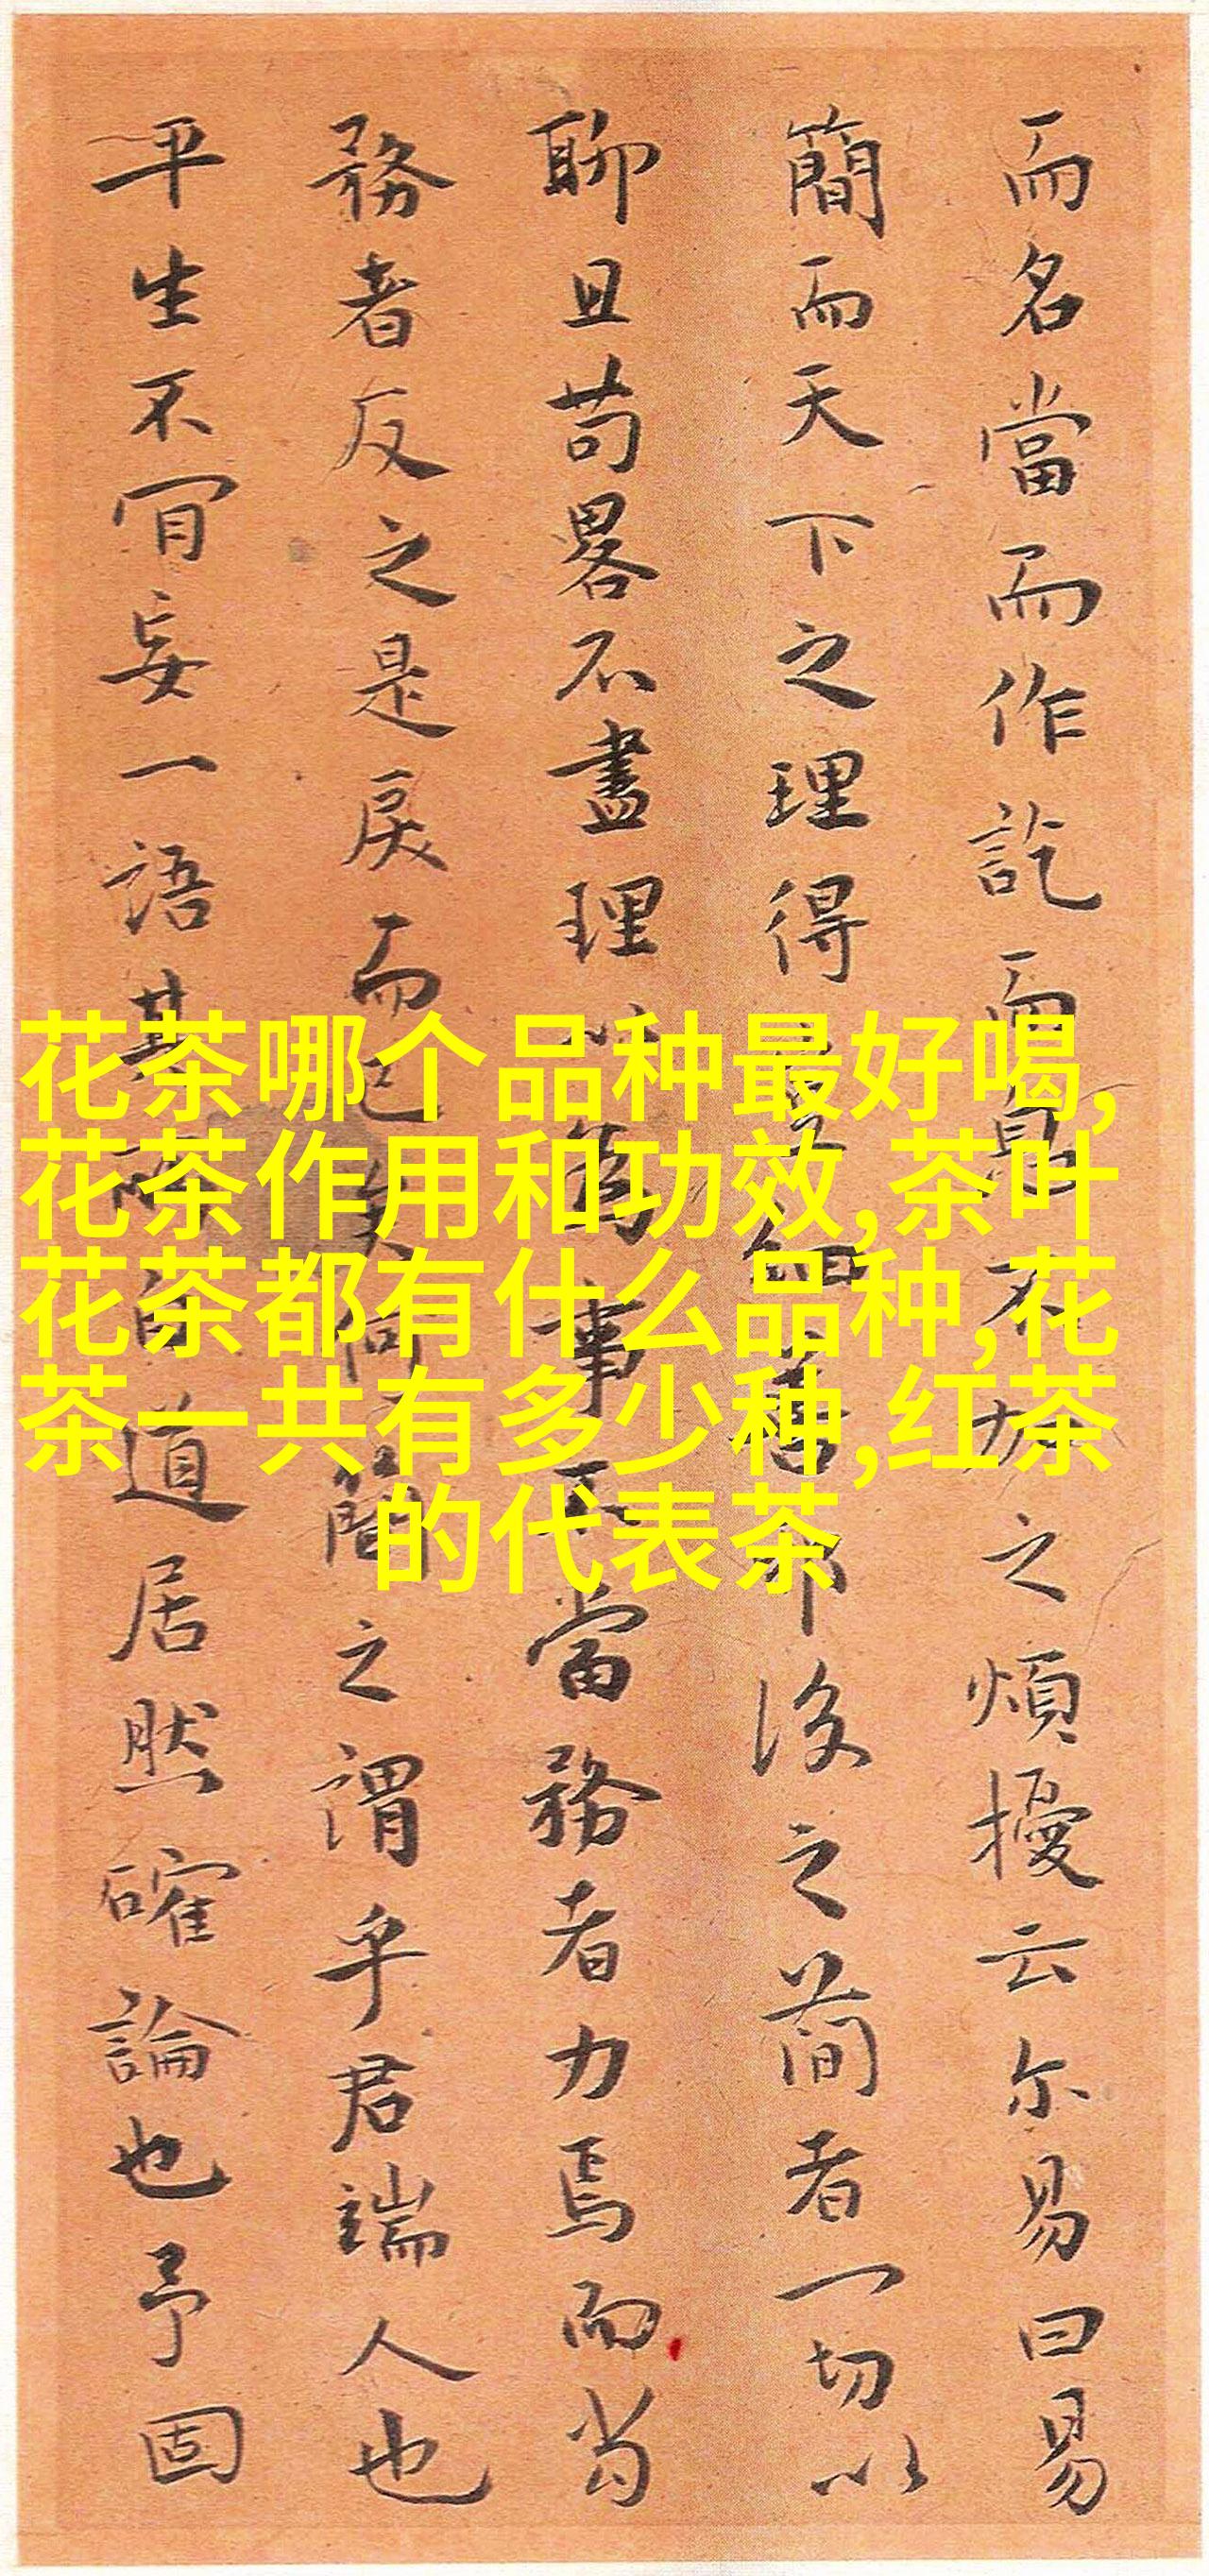 而名當而作訖而
之煩擾云尔易曰易
簡而天下之理得
後之簡者一切以
聊且苟畧不盡理
事不當務者力焉而苟
務者反之是戾而已矣
簡之謂乎君端人也
平生不肎妄一語其
自道居然確論也予固
花茶哪个品种最好喝,
花茶作用和功效,茶叶
花茶都有什么品种,花
茶一共有多少种,红茶
的代表茶